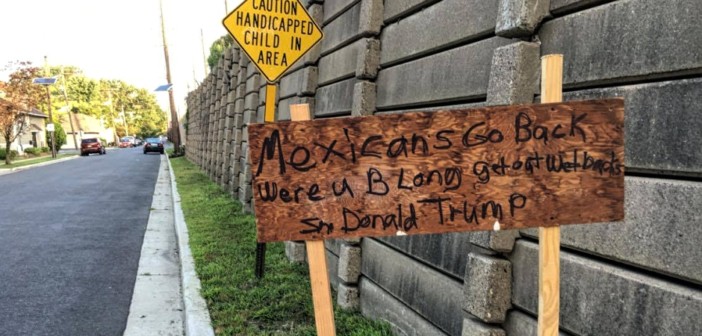 CAUTION
HANDICAPPED
CHILD IN
AREA
Mexicans Go Back
Were u B Long get out Wetbacks
Sin Donald Trump